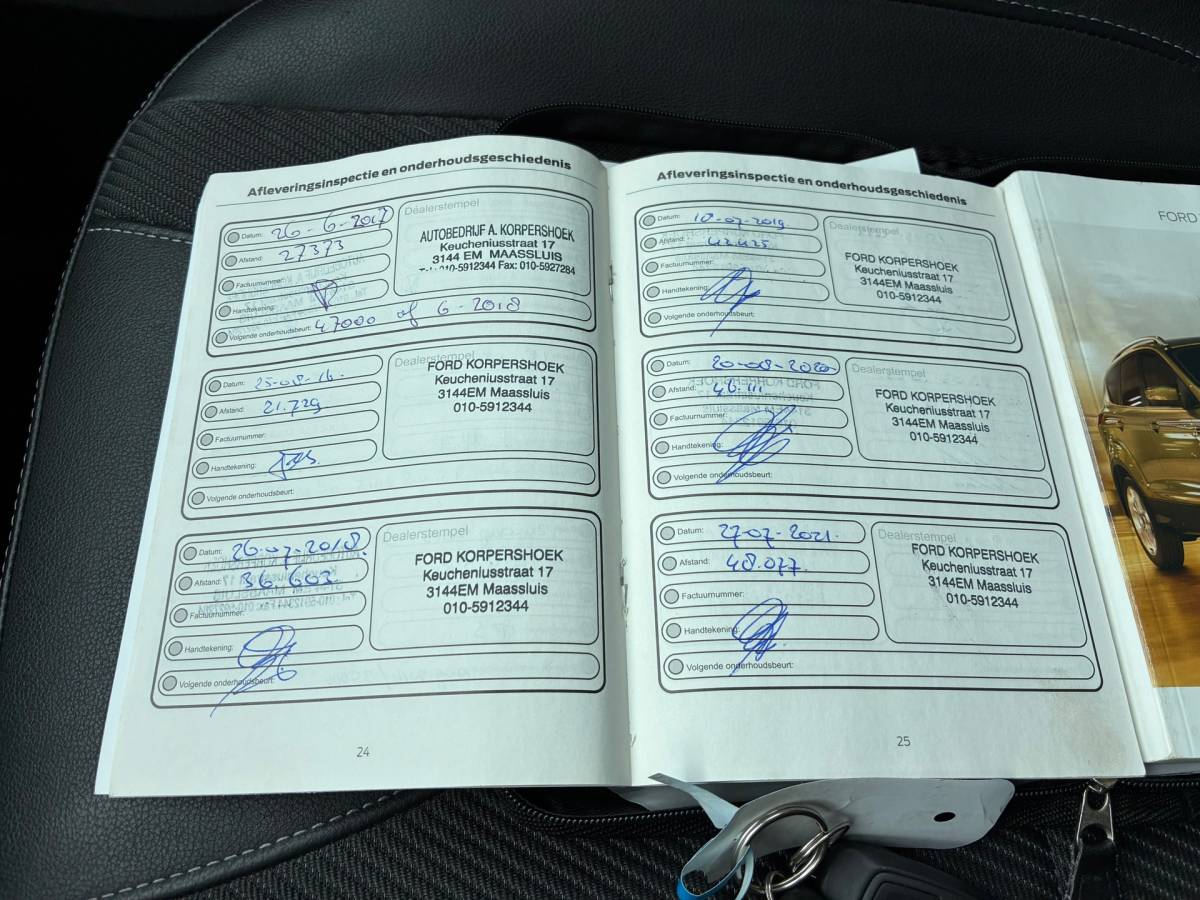 Afleveringsinspectie en onderhoudsgeschiedenis
Datum: 26-6-2017
Afstand: 27373
Factuurnummer:
Handtekening:
Volgende onderhoudsbeurt: 47000 of 6-2018
Dealerstempel
AUTOBEDRIJF A. KORPERSHOEK
Keucheniusstraat 17
3144 EM MAASSLUIS
Tel.: 010-5912344 Fax: 010-5927284
Datum: 25-08-16.
Afstand: 21.729
Factuurnummer:
Handtekening:
Volgende onderhoudsbeurt:
Dealerstempel
FORD KORPERSHOEK
Keucheniusstraat 17
3144EM Maassluis
010-5912344
Datum: 26-07-2018.
Afstand: 36.603.
Factuurnummer:
Handtekening:
Volgende onderhoudsbeurt:
Dealerstempel
FORD KORPERSHOEK
Keucheniusstraat 17
3144EM Maassluis
010-5912344
24
Afleveringsinspectie en onderhoudsgeschiedenis
Datum: 18-07-2019.
Afstand: 42.425
Factuurnummer:
Handtekening:
Volgende onderhoudsbeurt:
Dealerstempel
FORD KORPERSHOEK
Keucheniusstraat 17
3144EM Maassluis
010-5912344
Datum: 20-08-2020
Afstand: 46.111
Factuurnummer:
Handtekening:
Volgende onderhoudsbeurt:
Dealerstempel
FORD KORPERSHOEK
Keucheniusstraat 17
3144EM Maassluis
010-5912344
Datum: 27-07-2021.
Afstand: 48.077.
Factuurnummer:
Handtekening:
Volgende onderhoudsbeurt:
Dealerstempel
FORD KORPERSHOEK
Keucheniusstraat 17
3144EM Maassluis
010-5912344
25
FORD